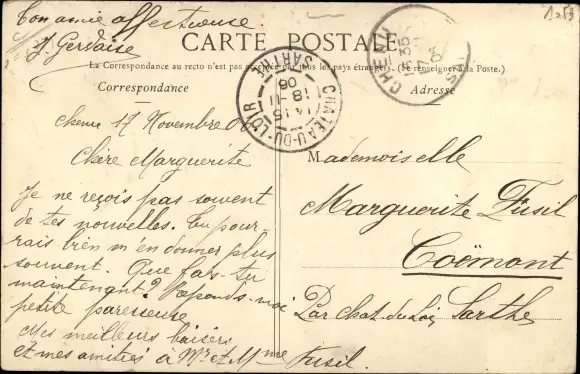 Ton amie affectueuse
Y. Gervaise
CARTE POSTALE
La Correspondance au recto n'est pas acceptée par tous les pays étrangers. (Se renseigner à la Poste.)
Correspondance
Adresse
CHATEAU-DU-LOIR
SARTHE
14 15
18 - 11
06
17 Novembre
Chère Marguerite
Je ne reçois pas souvent
de tes nouvelles. Tu pour-
rais bien m'en donner plus
souvent. Que fais-tu
maintenant? Réponds-moi
petite paresseuse
Mes meilleurs baisers
et mes amitiés à Mr et Mme Fusil.
Mademoiselle
Marguerite Fusil
Coëmont
Par Chat.-du-Loir Sarthe